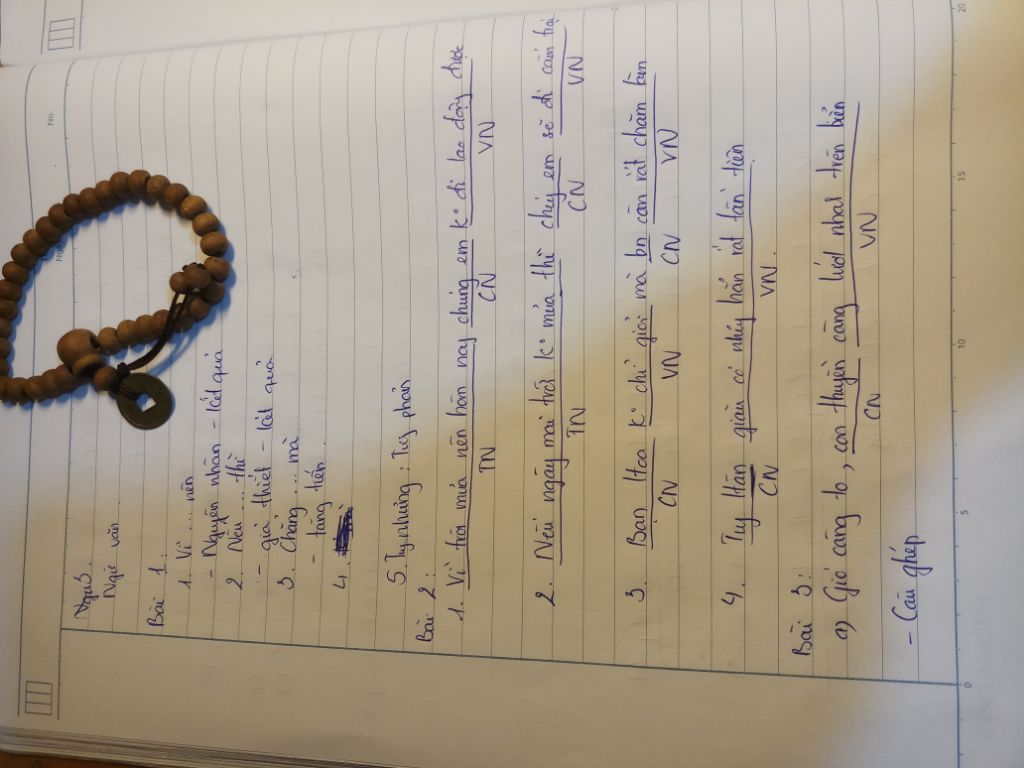 Ngữ văn
Bài 1:
1. Vì ... nên
- Nguyên nhân - kết quả
2. Nếu ... thì
- giả thiết - kết quả
3. Chẳng ... mà
- tăng tiến
4.
5. Tuy nhưng: Tương phản
Bài 2:
1. Vì trời mưa nên hôm nay chúng em k° đi lao động được
TN CN VN
2. Nếu ngày mai trời k° mưa thì chúng em sẽ đi cắm trại
TN CN VN
3. Bạn Hoa k° chỉ giỏi mà bn còn rất chăm làm
CN VN CN VN
4. Tuy Hân giàu có nhưng hắn rất tằn tiện
CN VN.
Bài 3:
a) Gió càng to, con thuyền càng lướt nhanh trên biển
CN VN
- Câu ghép
No.
No.
0 5 10 15 20